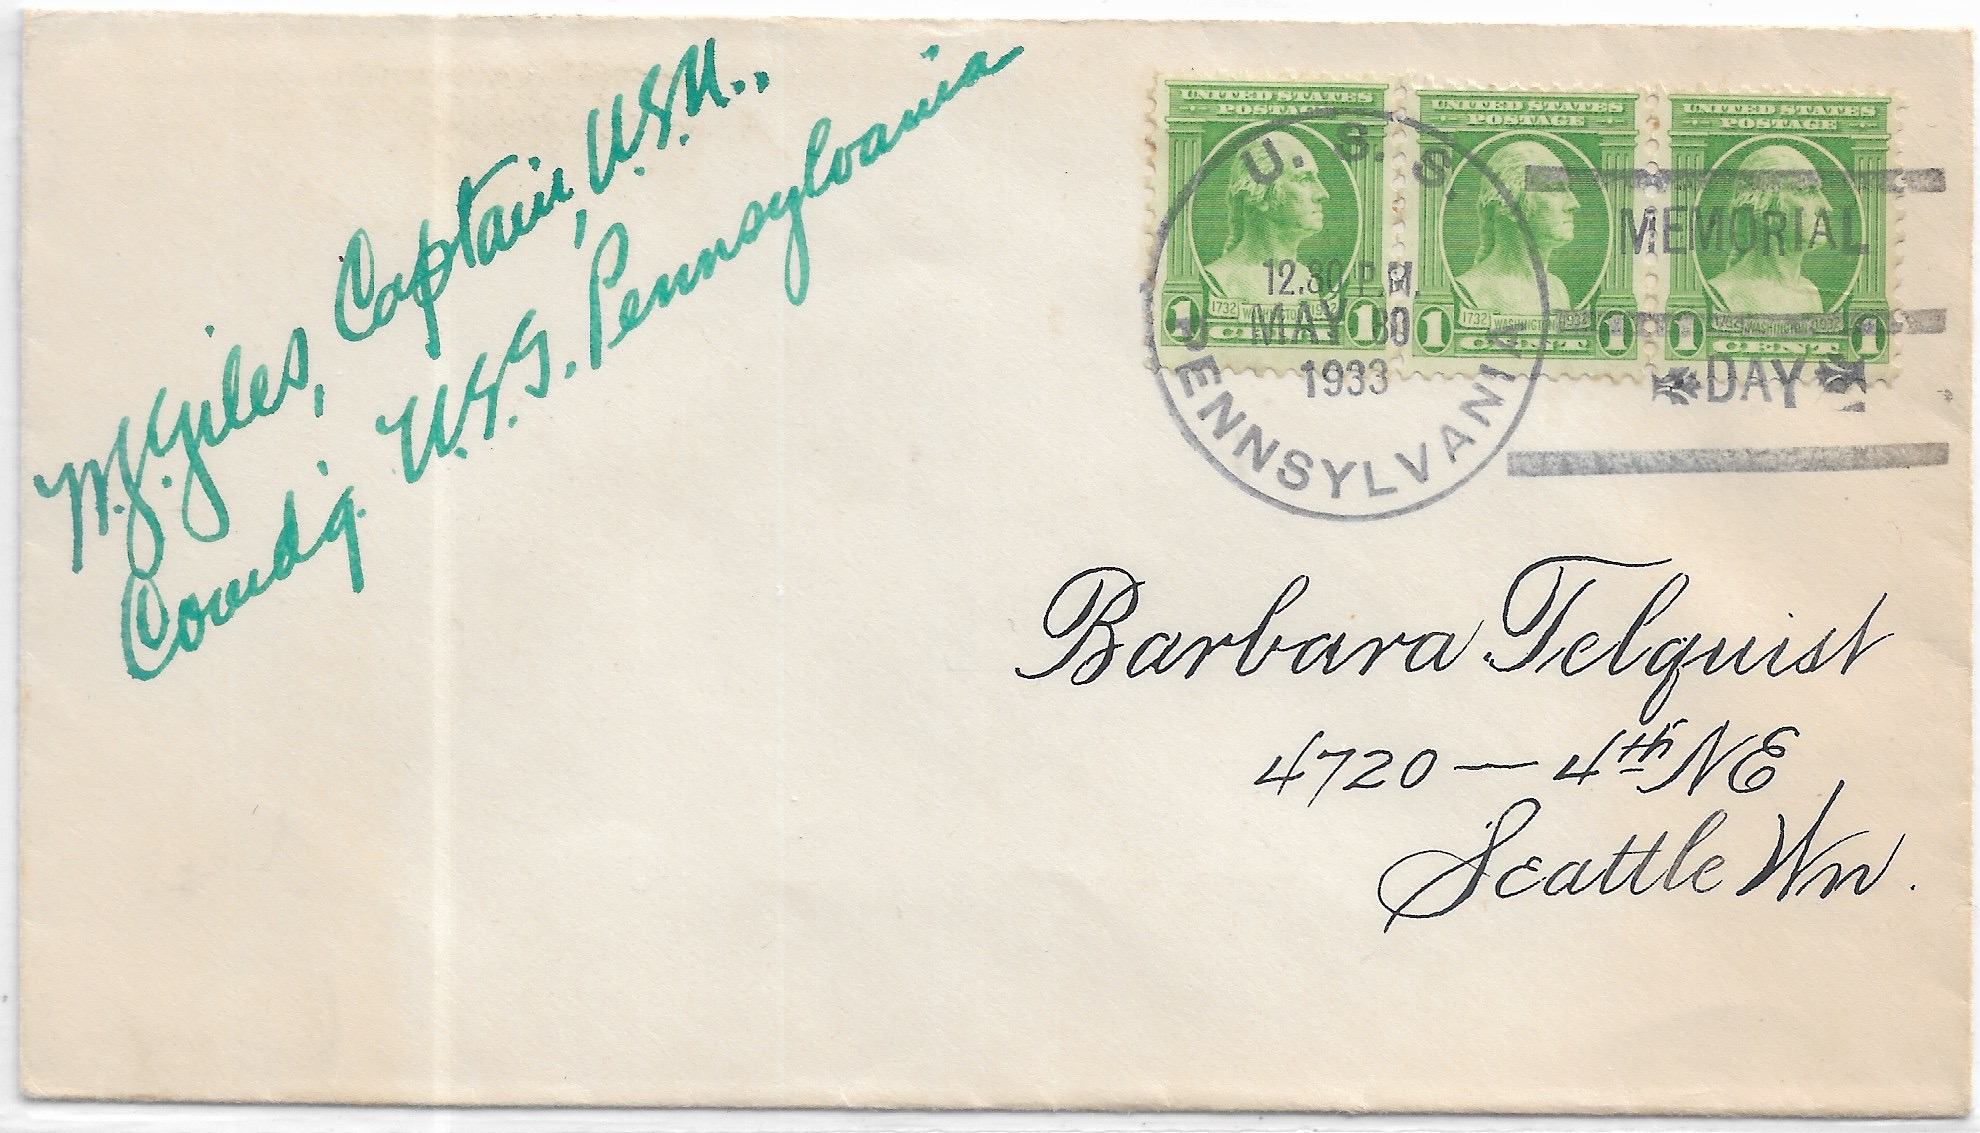 W.J. Giles, Captain, U.S.N.,
Comdg. U.S.S. Pennsylvania
UNITED STATES POSTAGE
1732 WASHINGTON 1932
1 CENT 1
UNITED STATES POSTAGE
1732 WASHINGTON 1932
1 CENT 1
UNITED STATES POSTAGE
1732 WASHINGTON 1932
1 CENT 1
U.S.S.
12.30 P.M.
MAY 30
1933
PENNSYLVANIA
MEMORIAL
DAY
Barbara Telquist
4720 — 4th NE
Seattle Wn.